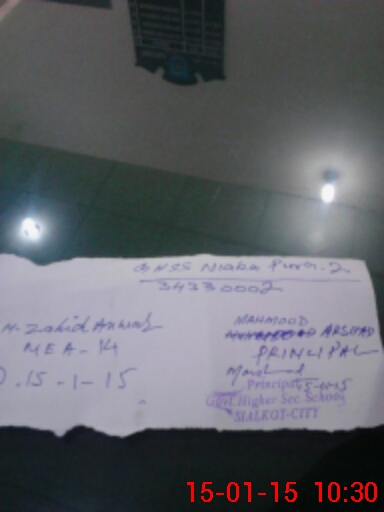 GHSS Niaka Pura. 2
34330002
M. Zahid Anwar
MEA - 14
D. 15 - 1 - 15
MAHMOOD
ARSHAD
PRINCIPAL
Principal
Govt. Higher Sec. School
SIALKOT-CITY
15-01-15 10:30